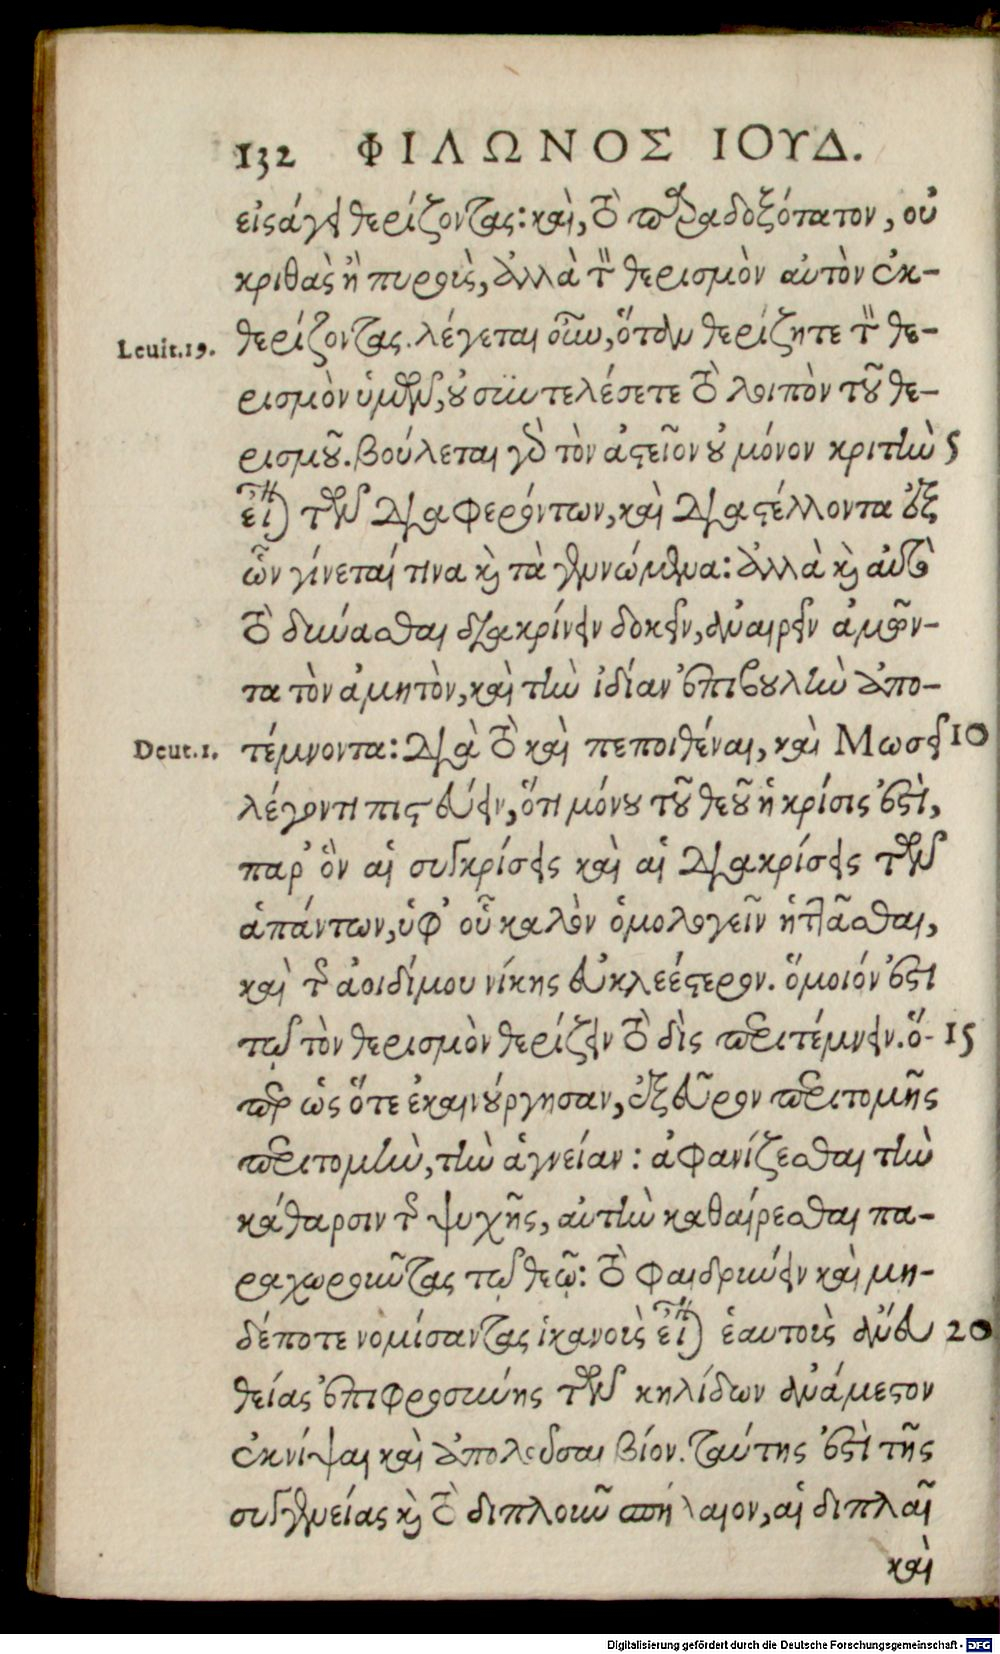 132 ΦΙΛΩΝΟΣ ΙΟΥΔ.
εἰσάγει θερίζοντας: καὶ, τὸ παραδοξότατον, οὐ
κριθὰς ἢ πυροὺς, ἀλλὰ τὸν θερισμὸν αὐτὸν ἐκ-
Leuit.19. θερίζοντας. λέγεται οὖν, ὅταν θερίζητε τὸν θε-
ρισμὸν ὑμῶν, οὐ συντελέσετε τὸ λοιπὸν τοῦ θε-
ρισμοῦ. βούλεται γὰρ τὸν ἀστεῖον οὐ μόνον κριτὴν 5
εἶναι τῶν διαφερόντων, καὶ διαστέλλοντα ἐξ
ὧν γίνεταί τινα καὶ τὰ γεννώμενα: ἀλλὰ καὶ αὐτὸ
τὸ δύνασθαι διακρίνειν δοκεῖν, ἀναιρεῖν ἀμῶν-
τα τὸν ἀμητὸν, καὶ τὴν ἰδίαν ἐπιβουλὴν ἀπο-
Deut.1. τέμνοντα: διὰ τὸ καὶ πεποιθέναι, καὶ Μωσεῖ 10
λέγοντι πιστεύειν, ὅτι μόνου τοῦ θεοῦ ἡ κρίσις ἐστὶ,
παρ' ὃν αἱ συγκρίσεις καὶ αἱ διακρίσεις τῶν
ἁπάντων, ὑφ' οὗ καλὸν ὁμολογεῖν ἡττᾶσθαι,
καὶ τῆς ἀοιδίμου νίκης εὐκλεέστερον. ὅμοιόν ἐστι
τῷ τὸν θερισμὸν θερίζειν τὸ δὶς περιτέμνειν. ὅ- 15
περ ὡς ὅτε ἐκαινούργησαν, ἐξεῦρον περιτομῆς
περιτομὴν, τὴν ἁγνείαν: ἀφανίζεσθαι τὴν
κάθαρσιν τῆς ψυχῆς, αὐτὴν καθαίρεσθαι πα-
ραχωροῦντας τῷ θεῷ: τὸ φαιδρύνειν καὶ μη-
δέποτε νομίσαντας ἱκανοὺς εἶναι ἑαυτοὺς ἄνευ 20
θείας ἐπιφροσύνης τῶν κηλίδων ἀνάμεστον
ἐκνίψαι καὶ ἀπολοῦσαι βίον. ταύτης ἐστὶ τῆς
συγγενείας καὶ τὸ διπλοῦν σπήλαιον, αἱ διπλαῖ
καὶ
Digitalisierung gefördert durch die Deutsche Forschungsgemeinschaft - DFG